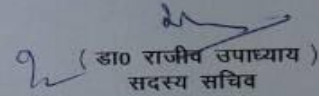 ( डा0 राजीव उपाध्याय )
सदस्य सचिव